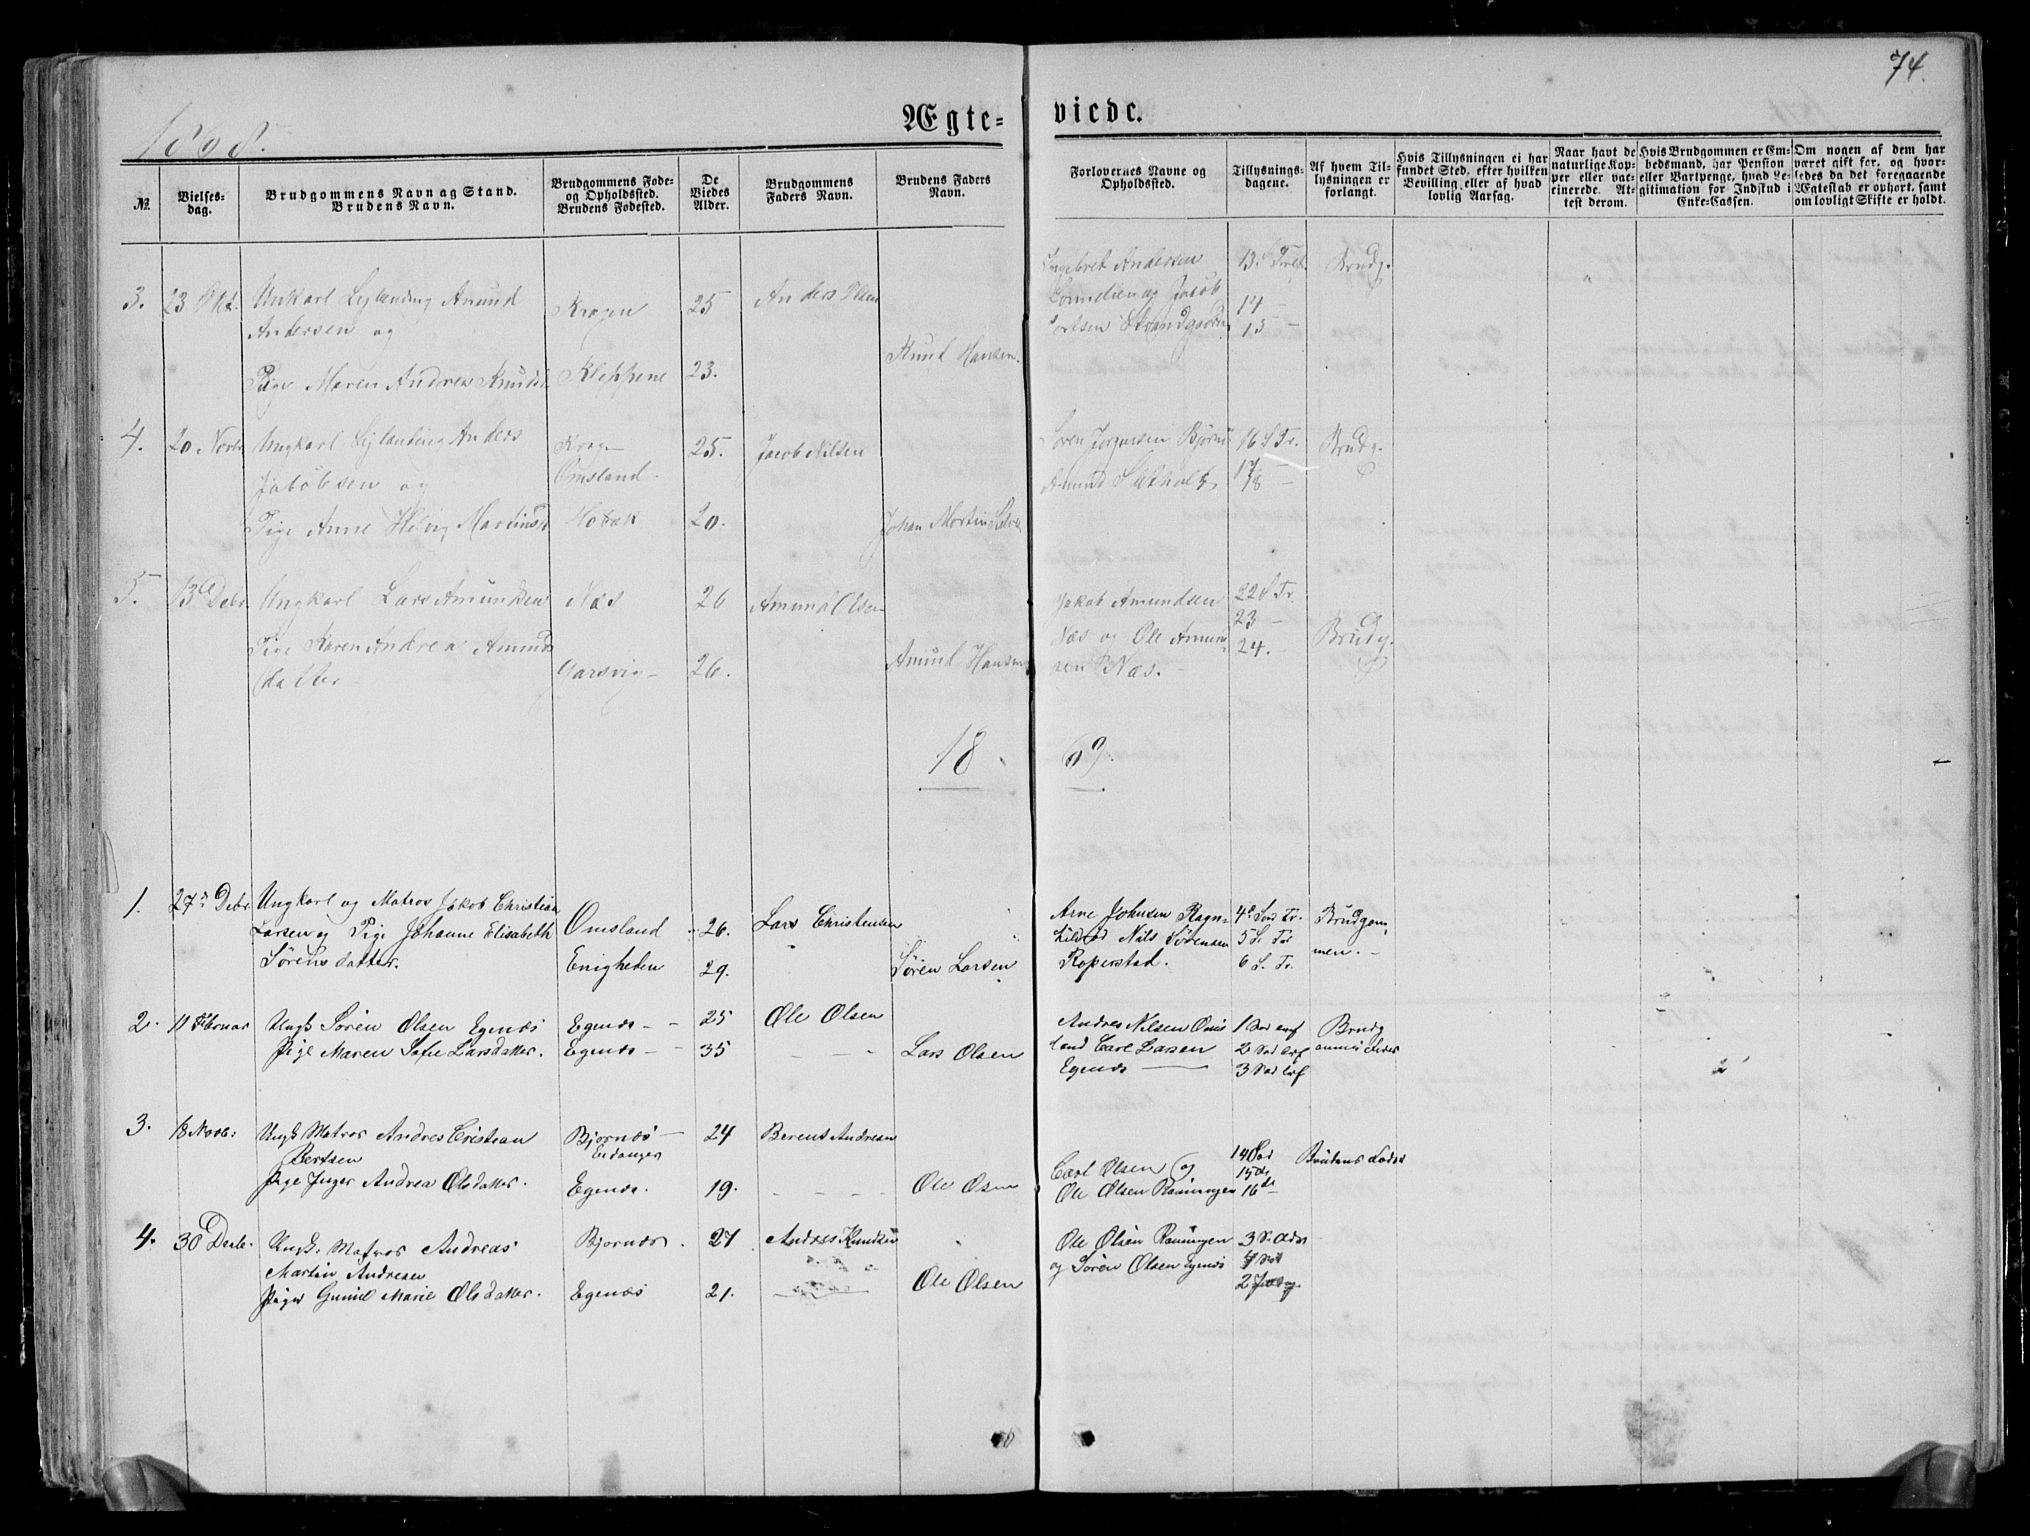 74.
1868.
Ægte=
viede.
No.
Vielses-
dag.
Brudgommens Navn og Stand.
Brudens Navn.
Brudgommens Føde-
og Opholdssted.
Brudens Fødested.
De
Viedes
Alder.
Brudgommens
Faders Navn.
Brudens Faders
Navn.
Forlovernes Navne og
Opholdssted.
Tillysnings-
dagene.
Af hvem Til-
lysningen er
forlangt.
Hvis Tillysningen ei har
fundet Sted, efter hvilken
Bevilling eller af hvad
lovlig Aarsag.
Naar havt de
naturlige Kop-
per eller vac-
cinerede. At-
test derom.
Hvis Brudgommen er Em-
bedsmand, har Pension
eller Vartpenge, hvad Le-
gitimation for Indskud i
Enke-Cassen.
Om nogen af dem har
været gift før, og hvor-
ledes da det foregaaende
Ægteskab er ophørt, samt
om lovligt Skifte er holdt.
3. 23 Okt. Unkarl Amund
Andersen og
Pige Maren Andrea Knuds
Kragen
Kleppene
25
23.
Anders Olsen
Knud Hansen.
Ingebret Andersen
og Jacob
Strandgaarden
13. S. Tref.
14 —
15 —
Brudg.
4. 20 Novbr Ungkarl Anders
Jakobsen og
Pige Anne Helvig Martinsd
Krage
Omsland.
Hobæk
25.
20.
Jacob Nilsen
Johan Martin
Søren Jørgensen
Amund
16 S Tr.
17 —
18 —
Brudg.
5. 13de Debr. Ungkarl Lars Amundsen
Pige Karen Andrea Amunds
datter
Næs
Garsvig
26
26.
Amund Olsen
Amund Hansen
Jakob Amundsen
Næs og Ole Amun-
sen Næs.
22 S Tr.
23 —
24. —
Brudg.
18
69.
1. 27de Debr. Ungkarl og Matros Jakob Christian
Larsen og Pige Johanne Elisabeth
Sørensdatter.
Omsland
Enigheden
26.
29.
Lars Christensen
Søren Larsen
Arne Johnsen Ragn-
Nils Sørensen
Roperstad.
4de Søn Tr.
5 S. Tr
6 S. Tr.
Brudgom,
men.
2. 11 Februar Ungk Søren Olsen Egenæs
Pige Maren Sofie Larsdatter.
Egenæs
Egenæs
25
35
Ole Olsen
Lars Olsen
Andres Nilsen Oms
land Carl Larsen
Egenæs
1
2
3
Brudg
3. 18 Novb: Ungk Matros Andres Cristian
Bertsen
Pige Inger Andrea Olsdatter.
Bjornæs
Eidanger
Egenæs.
24
19.
Berent Andresen
Ole Osen
Carl Olsen og
Ole Olsen Rønningen
14 Sød
15 de
16 de
Brudens Fader
4. 30 Decb. Ungk. Matros Andreas
Martin Andresen
Pige Gunild Marie Olsdatter.
Bjornæs
Egenæs
27
21.
Andres Knudsen
Ole Olsen
Ole Olsen Rønningen
og Søren Olsen Egenæs
3 S.
4
2